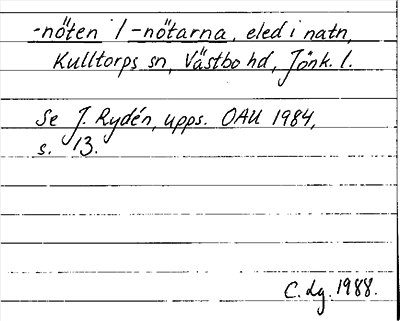 -nöten / -nötarna, eled i natn,
Kulltorps sn, Västbo hd, Jönk. l.
Se J. Rydén, upps. OAU 1984,
s. 13.
C. dg. 1988.